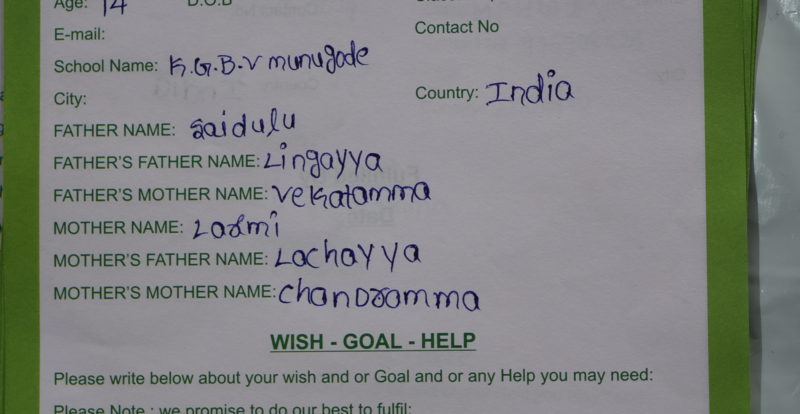 Age: 14 D.O.B
E-mail: Contact No
School Name: K.G.B.V munugode
City: Country: India
FATHER NAME: Saidulu
FATHER'S FATHER NAME: Lingayya
FATHER'S MOTHER NAME: Vekatamma
MOTHER NAME: Laxmi
MOTHER'S FATHER NAME: Lachayya
MOTHER'S MOTHER NAME: Chandramma
WISH - GOAL - HELP
Please write below about your wish and or Goal and or any Help you may need:
Please Note : we promise to do our best to fulfil: